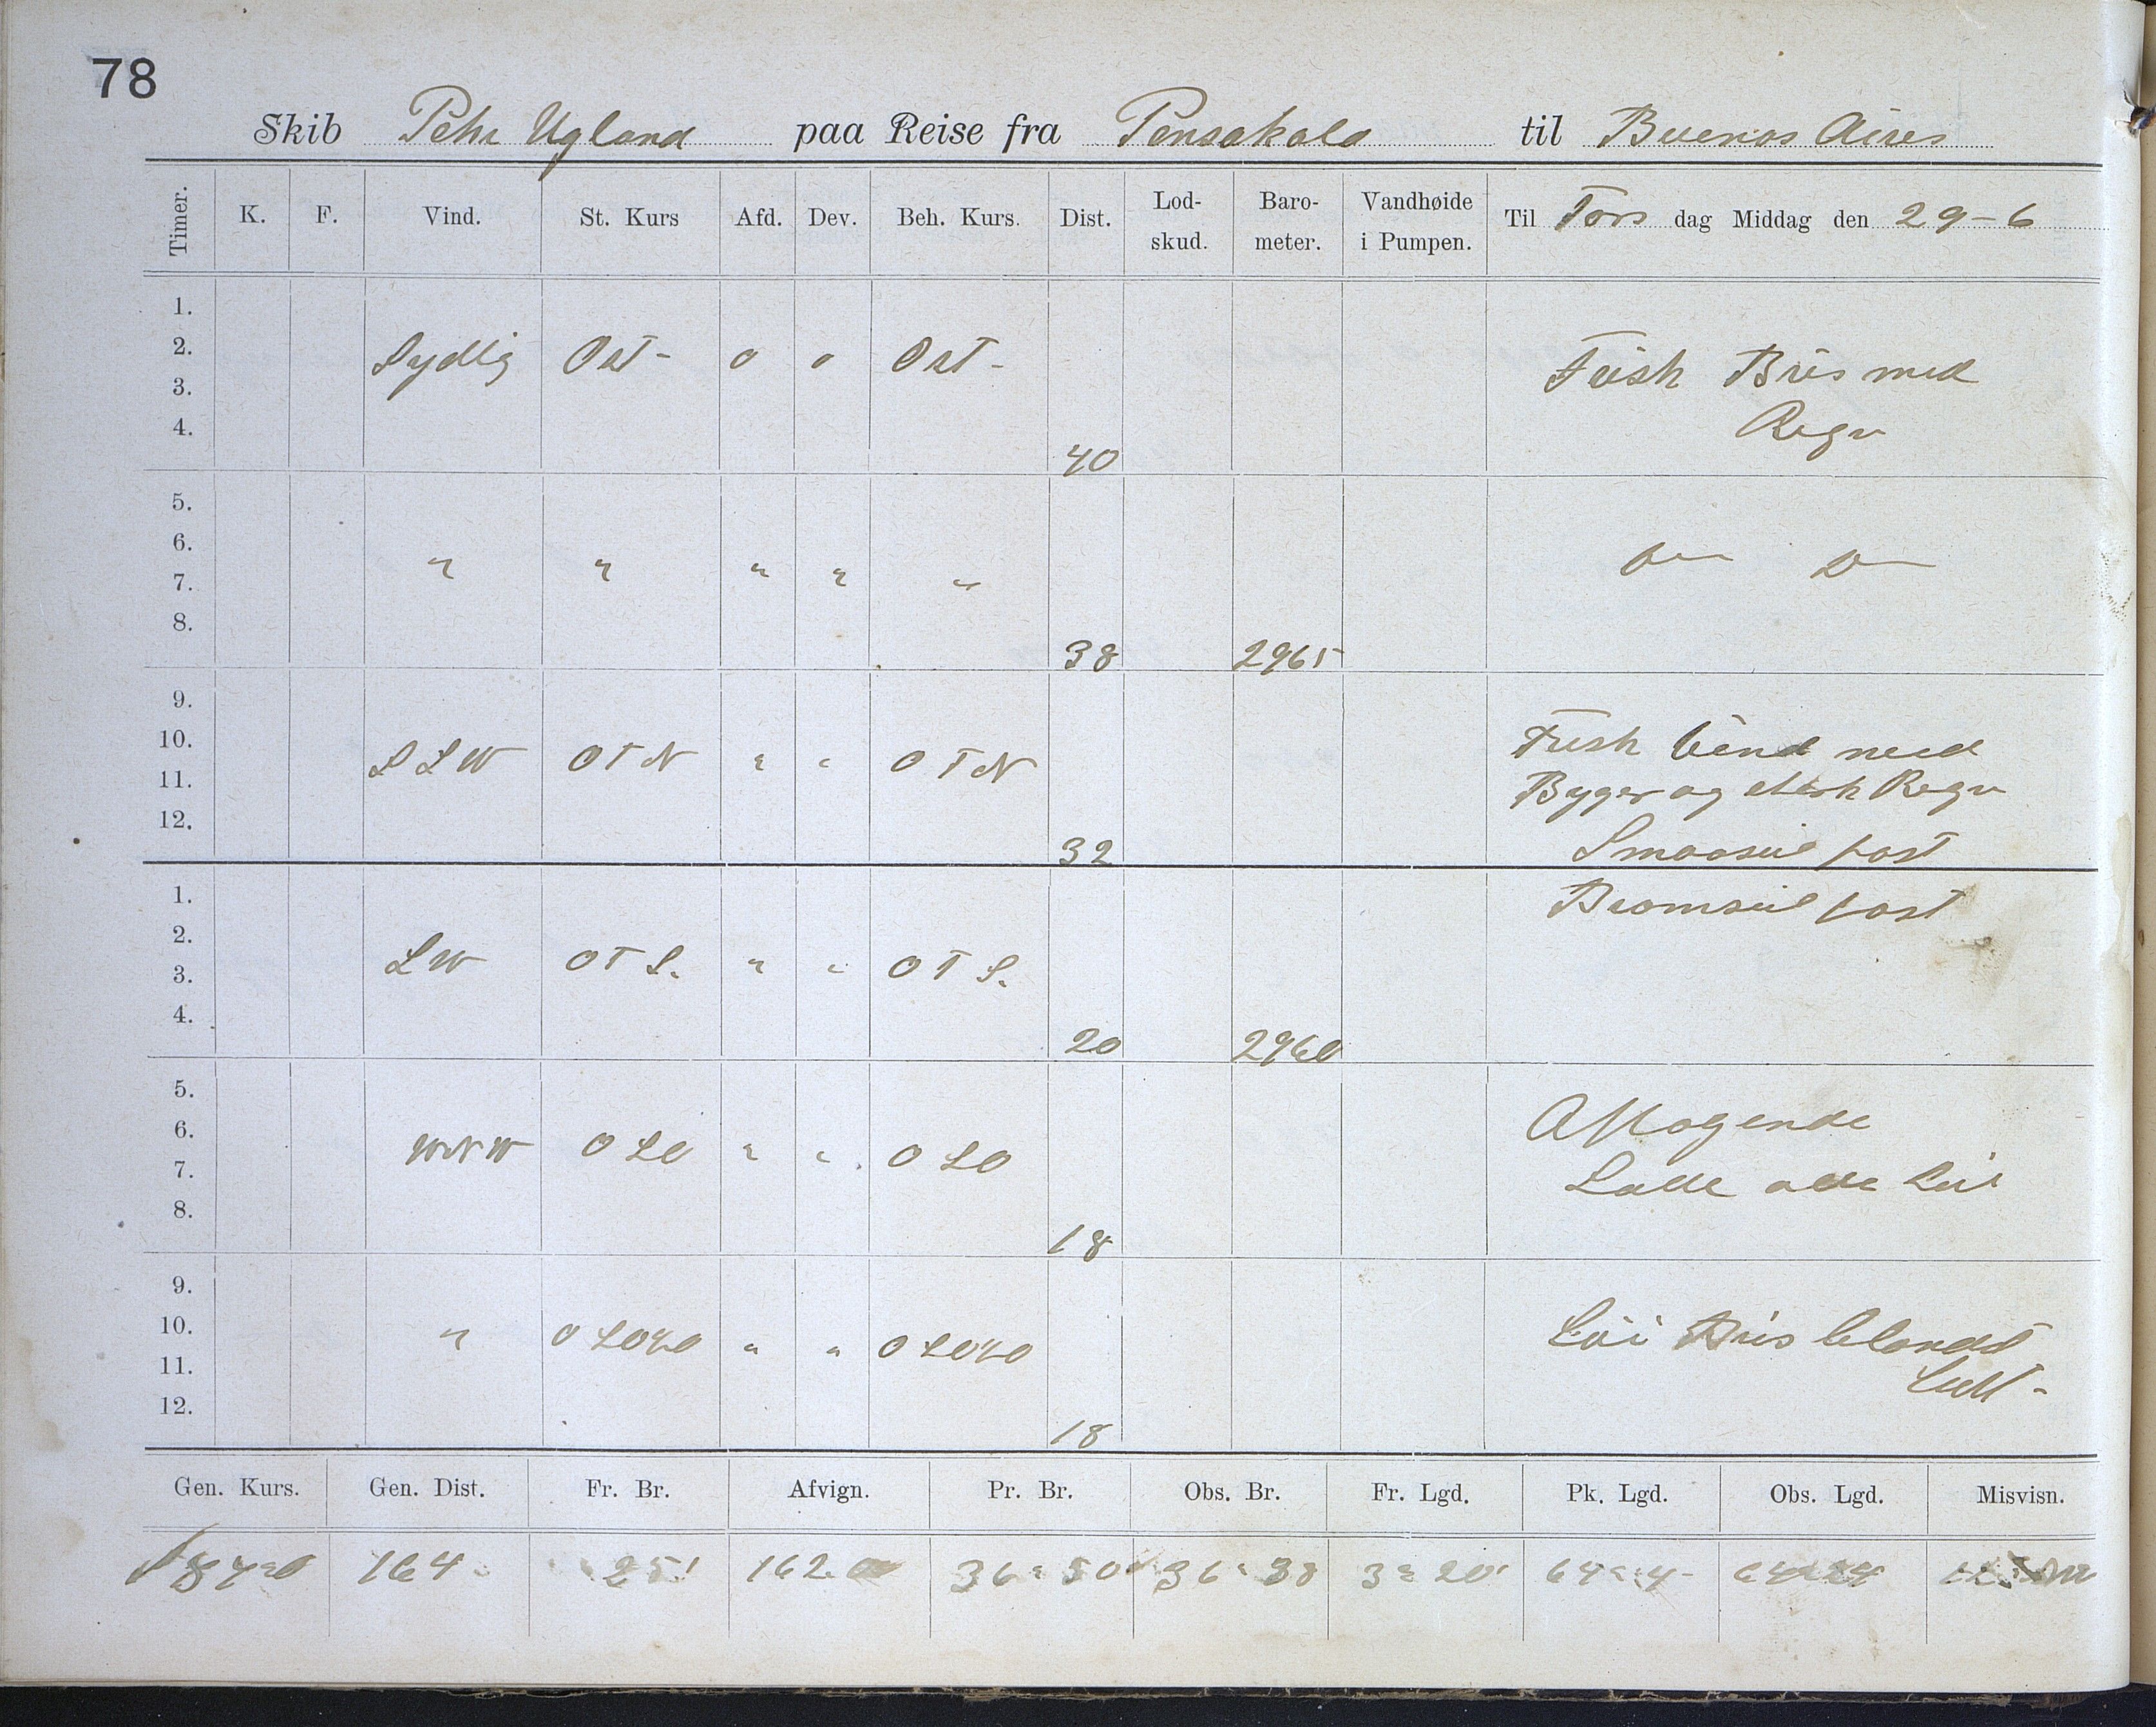 78
Skib Pehr Ugland paa Reise fra Pensakola til Buenos Aires
Timer. K. F. Vind. St. Kurs Afd. Dev. Beh. Kurs. Dist. Lod-skud. Baro-meter. Vandhøide i Pumpen. Til Tors dag Middag den 29-6
1.
2. Sydlig Ost - 0 0 Ost - Frisk Bris med
3.
4. 40 Regn
5.
6. " " " " " Do Do
7.
8. 38 2965
9.
10. SSW OTN " " OTN Frisk Vind med
11. Byger og Regn
12. 32 Smaaseil fast
1. Bramseil fast
2.
3. SW OTS. " " OTS.
4. 20 2960
5.
6. WNW OSO " " OSO Aftagende
7. Satte alle Seil
8. 18
9.
10. " OSO½O " " OSO½O Löi Bris blandt
11. Luft -
12. 18
Gen. Kurs. Gen. Dist. Fr. Br. Afvign. Pr. Br. Obs. Br. Fr. Lgd. Pk. Lgd. Obs. Lgd. Misvisn.
164 25' 162.0 36° 50' 36° 38 3° 20' 64° 4'